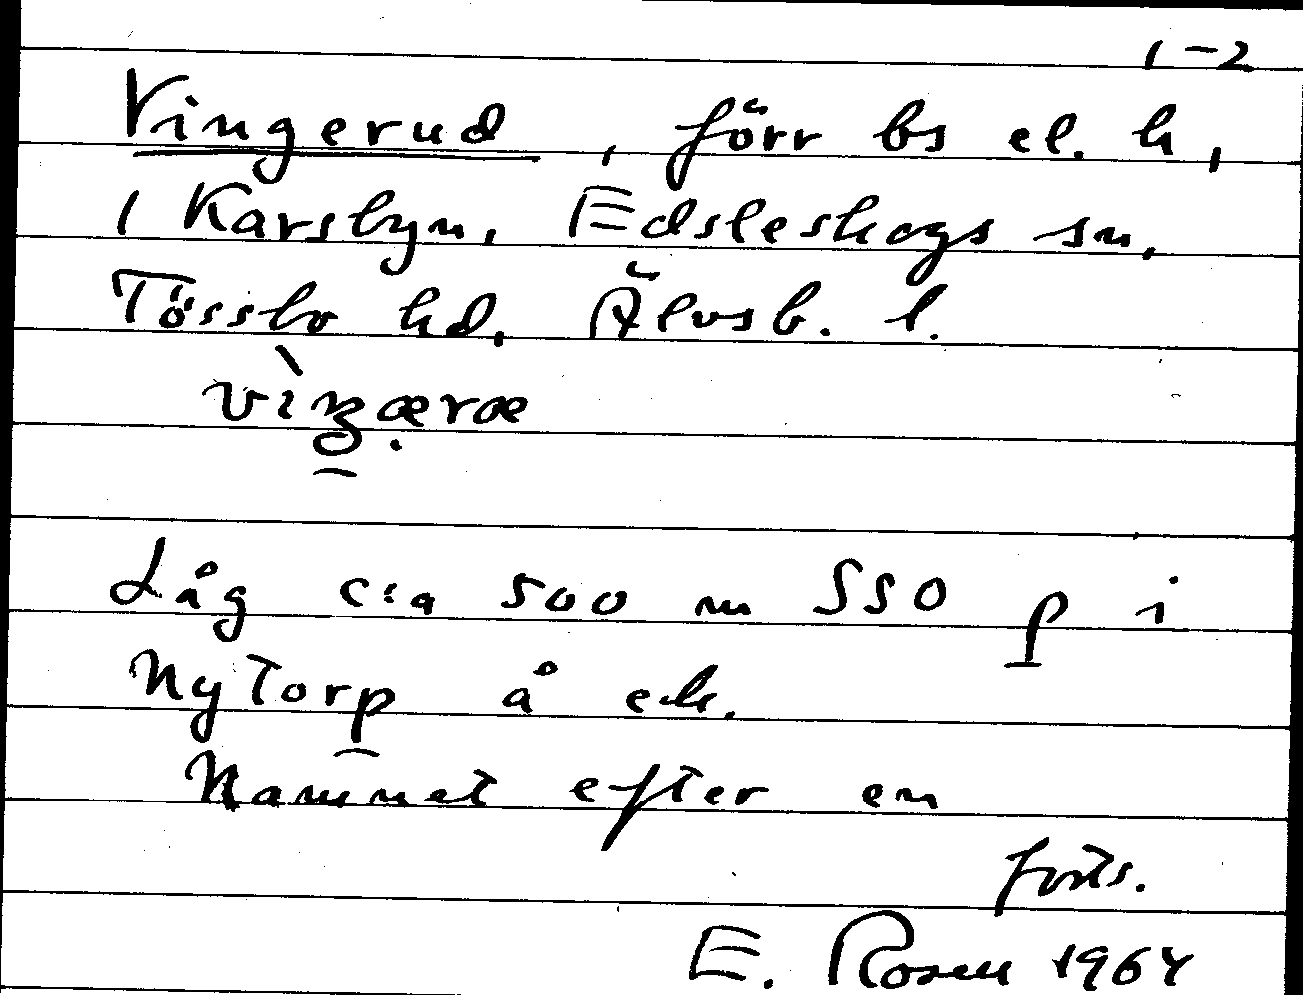 1-2
Vingerud, förr bs el. h,
i Karsbyn, Edsleskogs sn,
Tössbo hd, Älvsb. l.
Låg c:a 500 m SSO p i
Nytorp å ek.
Namnet efter en
forts.
E. Rosen 1964